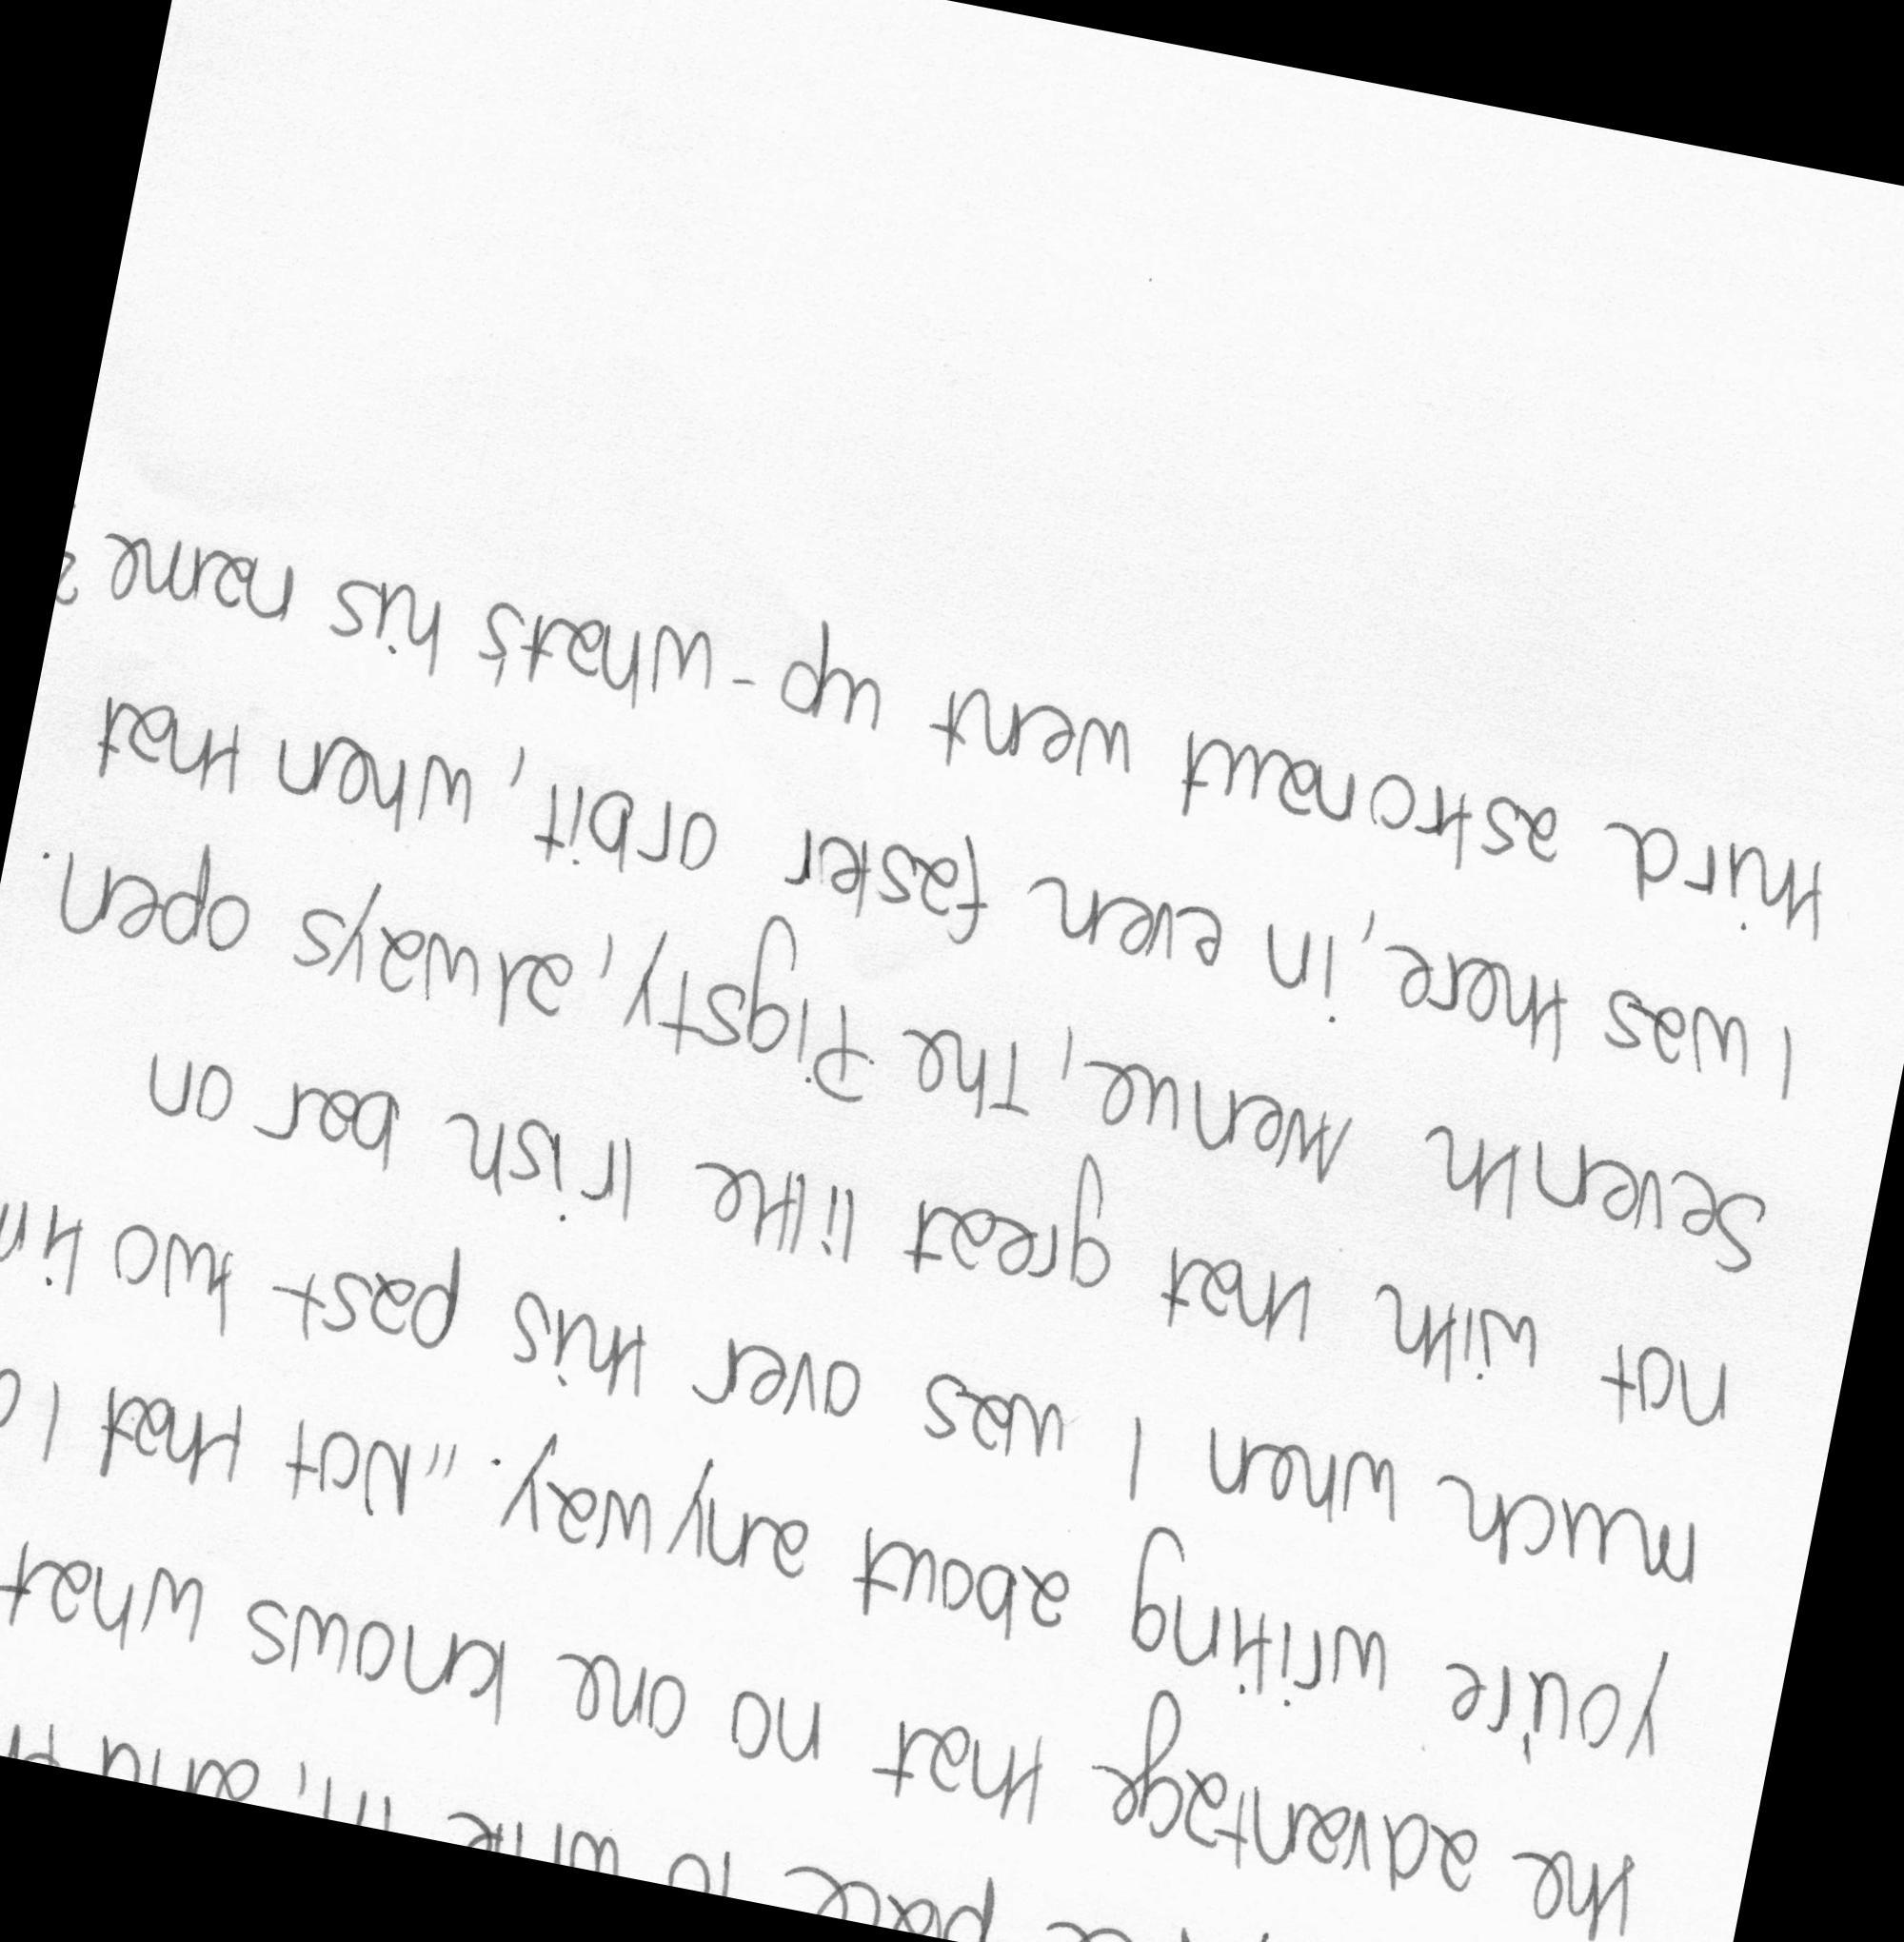 place to write in, and
the advantage that no one knows what
you're writing about anyway. "Not that I
much when I was over this past two
not with that great little Irish bar on
Seventh Avenue, The Pigsty, always open.
I was there, in even faster orbit, when that
third astronaut went up - what's his name?